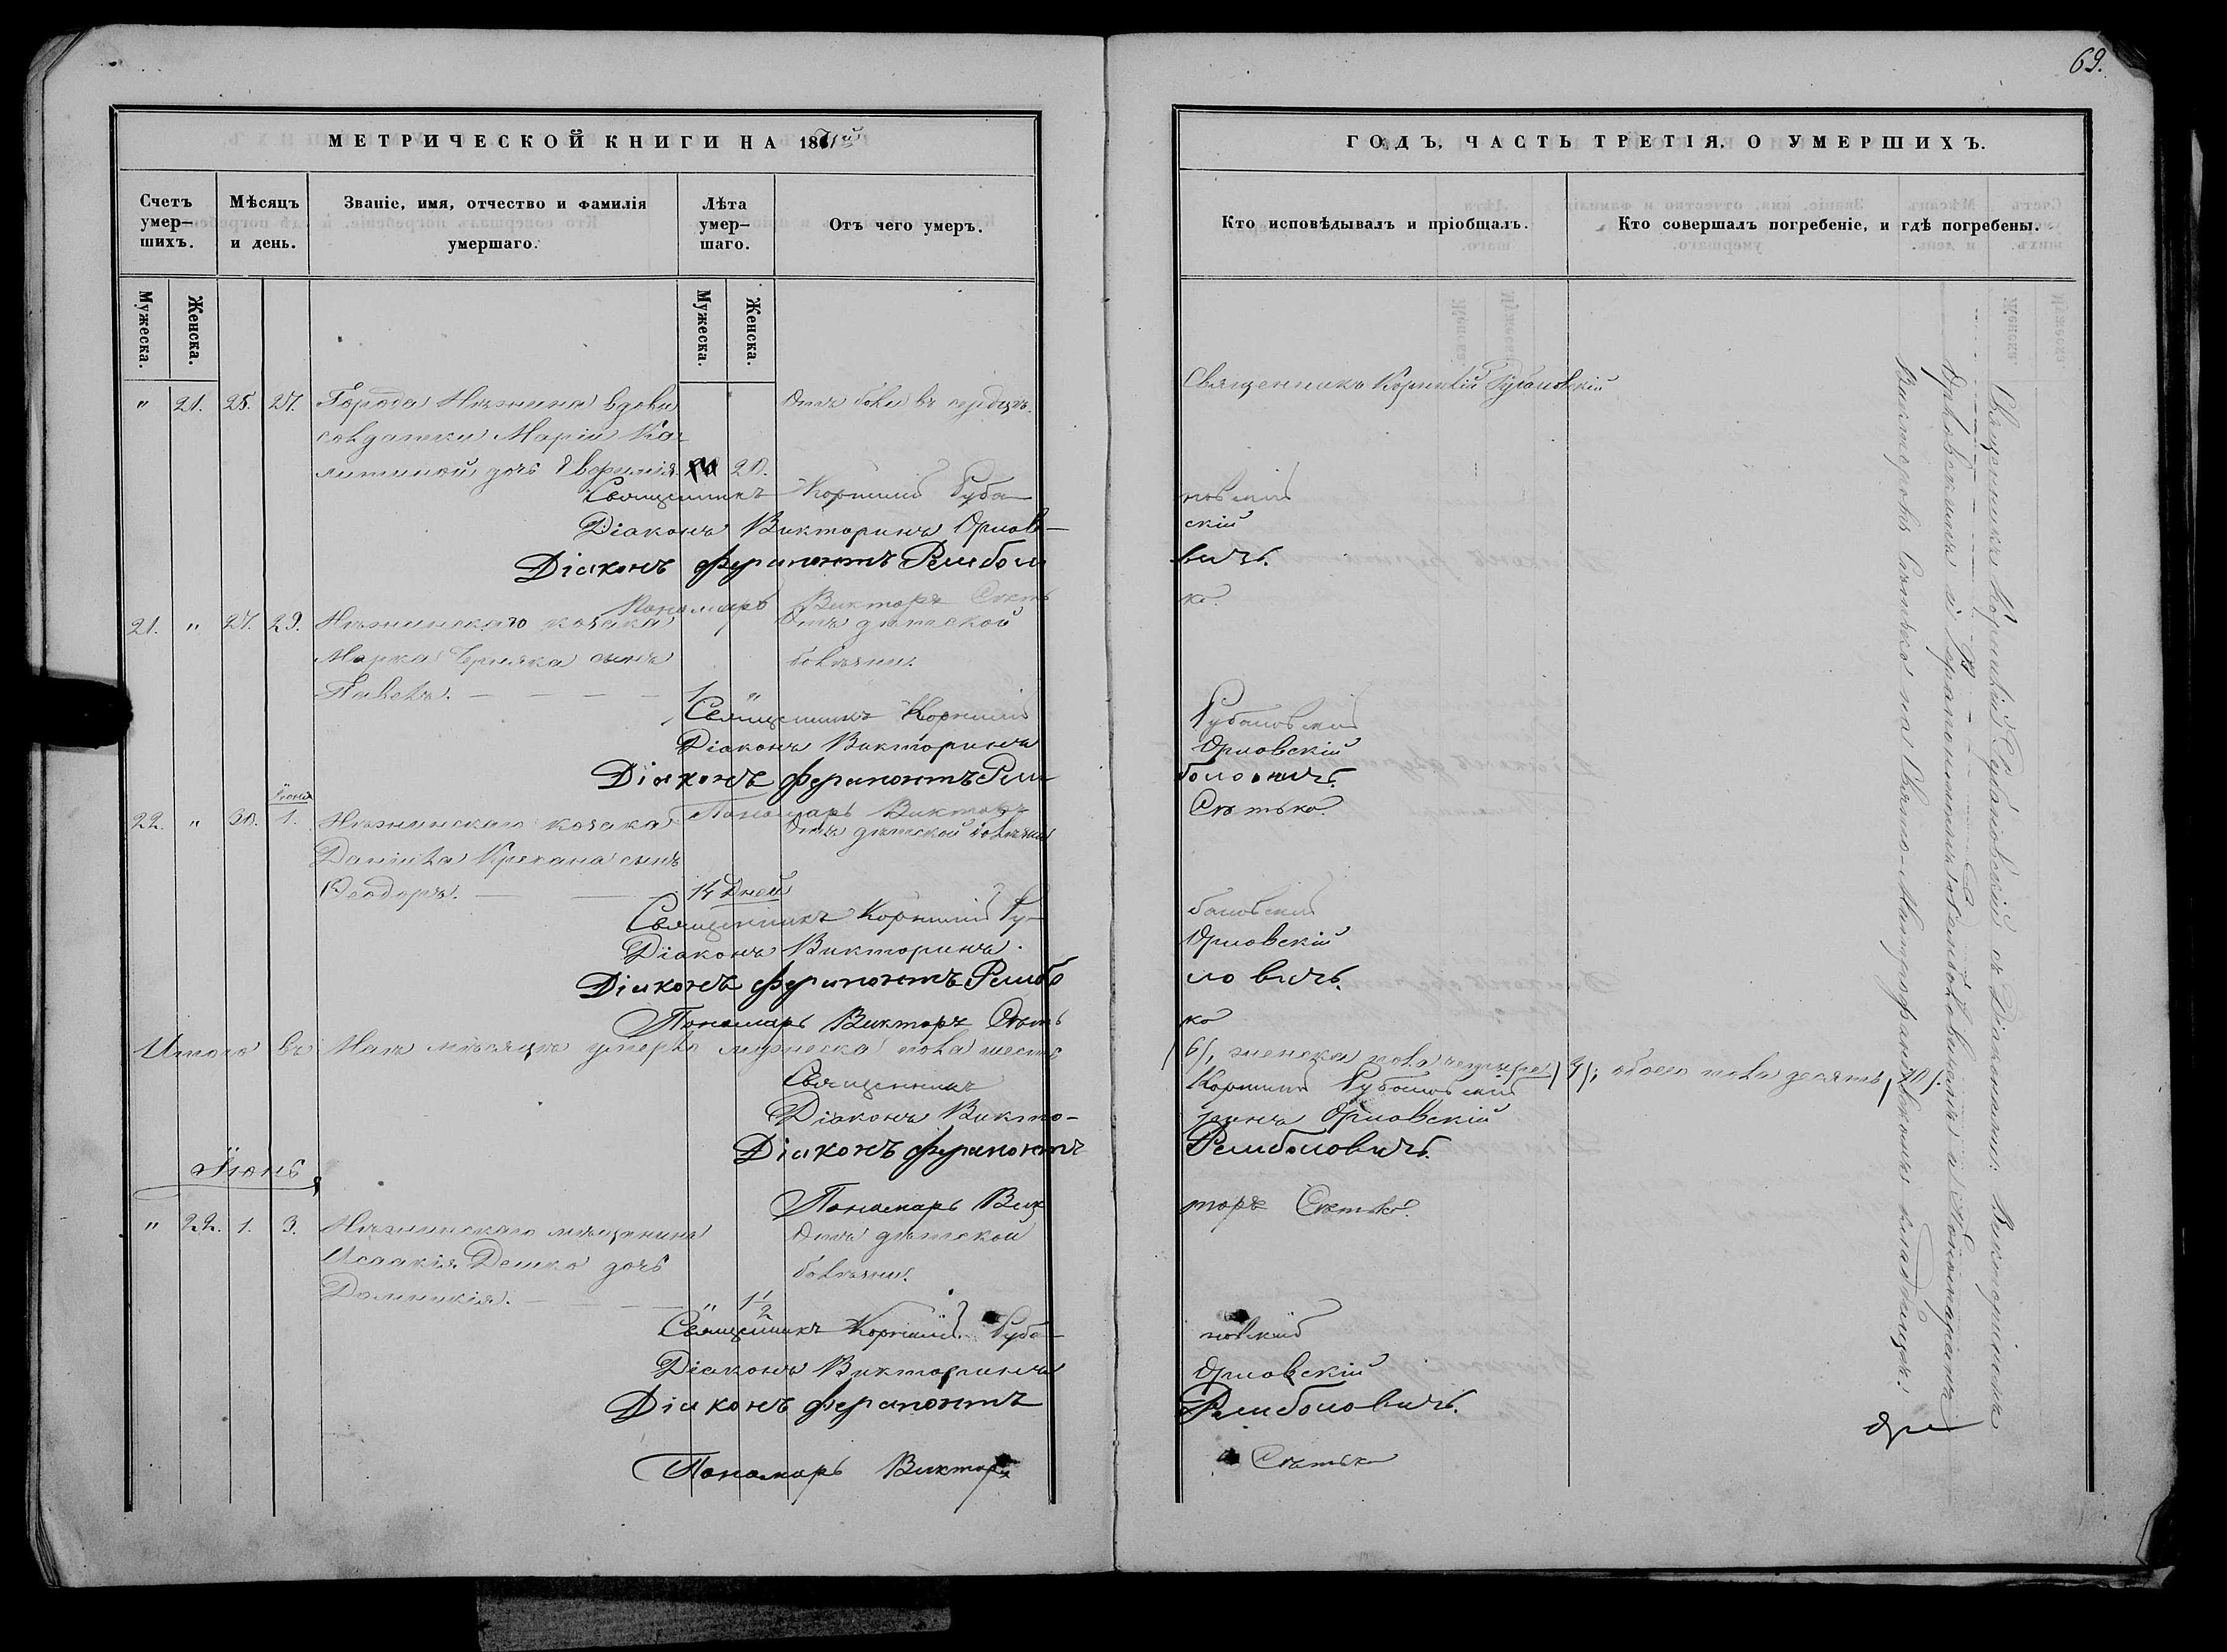 69.
МЕТРИЧЕСКОЙ КНИГИ НА 1871й
ГОДЪ, ЧАСТЬ ТРЕТІЯ, О УМЕРШИХЪ.
Счетъ умер-шихъ.
Мѣсяцъ и день.
Званіе, имя, отчество и фамилія умершаго.
Лѣта умер-шаго.
Отъ чего умеръ.
Кто исповѣдывалъ и пріобщалъ.
Кто совершалъ погребеніе, и гдѣ погребены.
Мужеска.
Женска.
Мужеска.
Женска.
" 21. 25. 27. Города Нѣжина вдовы
солдатки Маріи Ка-
литиной дочь Евфимія. 20.
Отъ боли въ сердцѣ.
Священникъ Корнилій Рубановскій
Священникъ Корнилій Рубановскій
Діаконъ Викторинъ Орловскій
Діаконъ Ферапонтъ Ремболовичъ.
Пономарь Викторъ Сѣтько.
21. " 27. 29. Нѣжинскаго козака
Марка Черняка сынъ
Павелъ. 1 "
Отъ дѣтской
болѣзни.
Священникъ Корнилій Рубановскій
Діаконъ Викторинъ Орловскій
Діаконъ Ферапонтъ Ремболовичъ.
Пономарь Викторъ Сѣтько.
22. " 30. Іюня 1. Нѣжинскаго козака
Даніила сынъ
Ѳеодоръ. 14 дней
Отъ дѣтской болѣзни
Священникъ Корнилій Рубановскій
Діаконъ Викторинъ Орловскій
Діаконъ Ферапонтъ Ремболовичъ.
Пономарь Викторъ Сѣтько
Итого въ Маѣ мѣсяцѣ умерло мужеска пола шесть /6/, женска пола четыре /4/; обоего пола десять /10/.
Священникъ Корнилій Рубановскій
Діаконъ Викторинъ Орловскій
Діаконъ Ферапонтъ Ремболовичъ.
Пономарь Викторъ Сѣтько.
Іюнь
" 22. 1. 3. Нѣжинскаго мѣщанина
Исаакія Дешко дочь
Домникія. " 1 1/2
Отъ дѣтской
болѣзни.
Священникъ Корнилій Рубановскій
Діаконъ Викторинъ Орловскій
Діаконъ Ферапонтъ Ремболовичъ.
Пономарь Викторъ Сѣтько
Священникъ Корнилій Рубановскій съ Діаконами: Викториномъ
Орловскимъ и Ферапонтомъ Ремболовичемъ и Пономаремъ
Викторомъ Сѣтько на кладбищѣ.